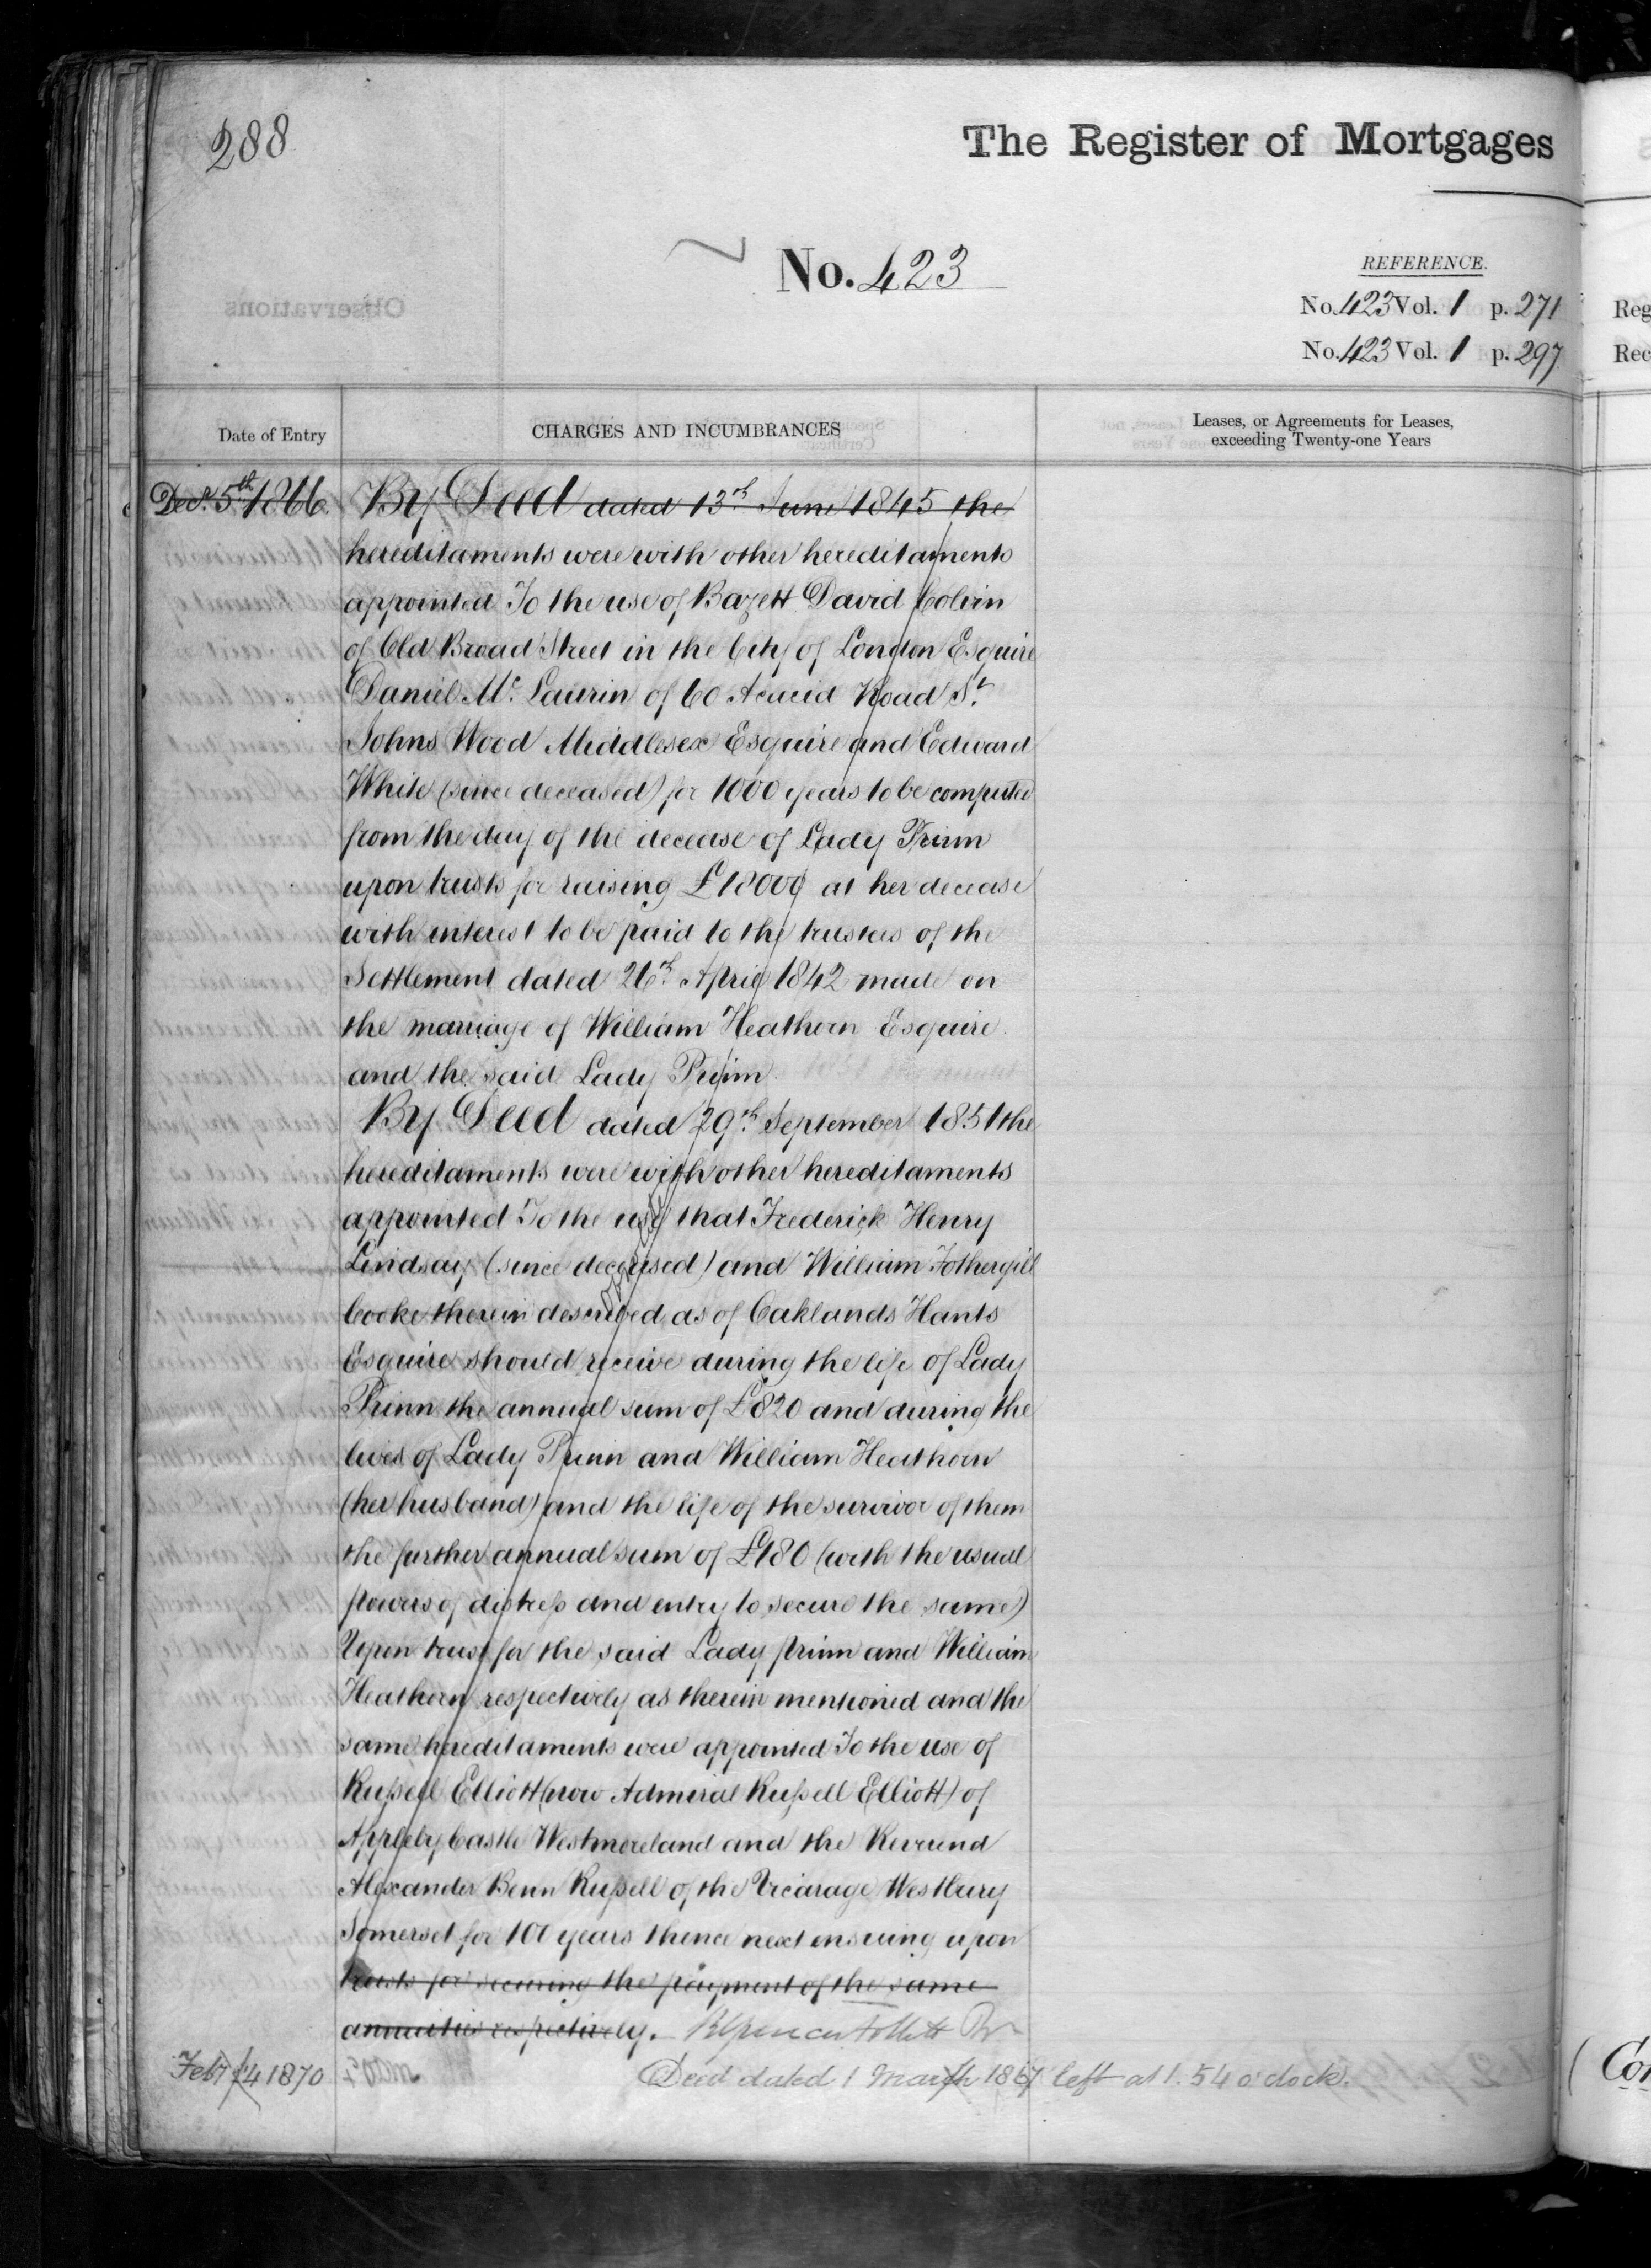 288
The Register of Mortgages
No. 423
REFERENCE.
No. 423 Vol. 1 p. 271
No. 423 Vol. 1 p. 297
Reg
Rec
Observations
Date of Entry
CHARGES AND INCUMBRANCES
Leases, or Agreements for Leases,
exceeding Twenty-one Years
Decr. 5th 1866.
By Deed dated 13th June 1845 the
hereditaments were with other hereditaments
appointed To the use of Bazett David Colvin
of Old Broad Street in the City of London Esquire
Daniel Mc. Laurin of 60 Acacia Road St.
Johns Wood Middlesex Esquire and Edward
White (since deceased) for 1000 years to be computed
from the day of the decease of Lady Prinn
upon trusts for raising £18000 at her decease
with interest to be paid to the trustees of the
Settlement dated 26th April 1842 made on
the marriage of William Heathorn Esquire
and the said Lady Prinn.
By Deed dated 29th September 1851 the
hereditaments were with other hereditaments
appointed To the use that Frederick Henry
Lindsay (since deceased) and William Fothergill
Cooke therein described as of Oaklands Hants
Esquire should receive during the life of Lady
Prinn the annual sum of £820 and during the
lives of Lady Prinn and William Heathorn
(her husband) and the life of the survivor of them
the further annual sum of £180 (with the usual
powers of distress and entry to secure the same)
Upon trust for the said Lady Prinn and William
Heathorn respectively as therein mentioned and the
same hereditaments were appointed To the use of
Russell Elliott (now Admiral Russell Elliott) of
Appleby Castle Westmoreland and the Reverend
Alexander Benn Russell of the Vicarage Westbury
Somerset for 100 years thence next ensuing upon
trusts for securing the payment of the same
annuities respectively. Follett
Feby 14 1870
Deed dated 1 March 1867 left at 1.54 o'clock.
Con